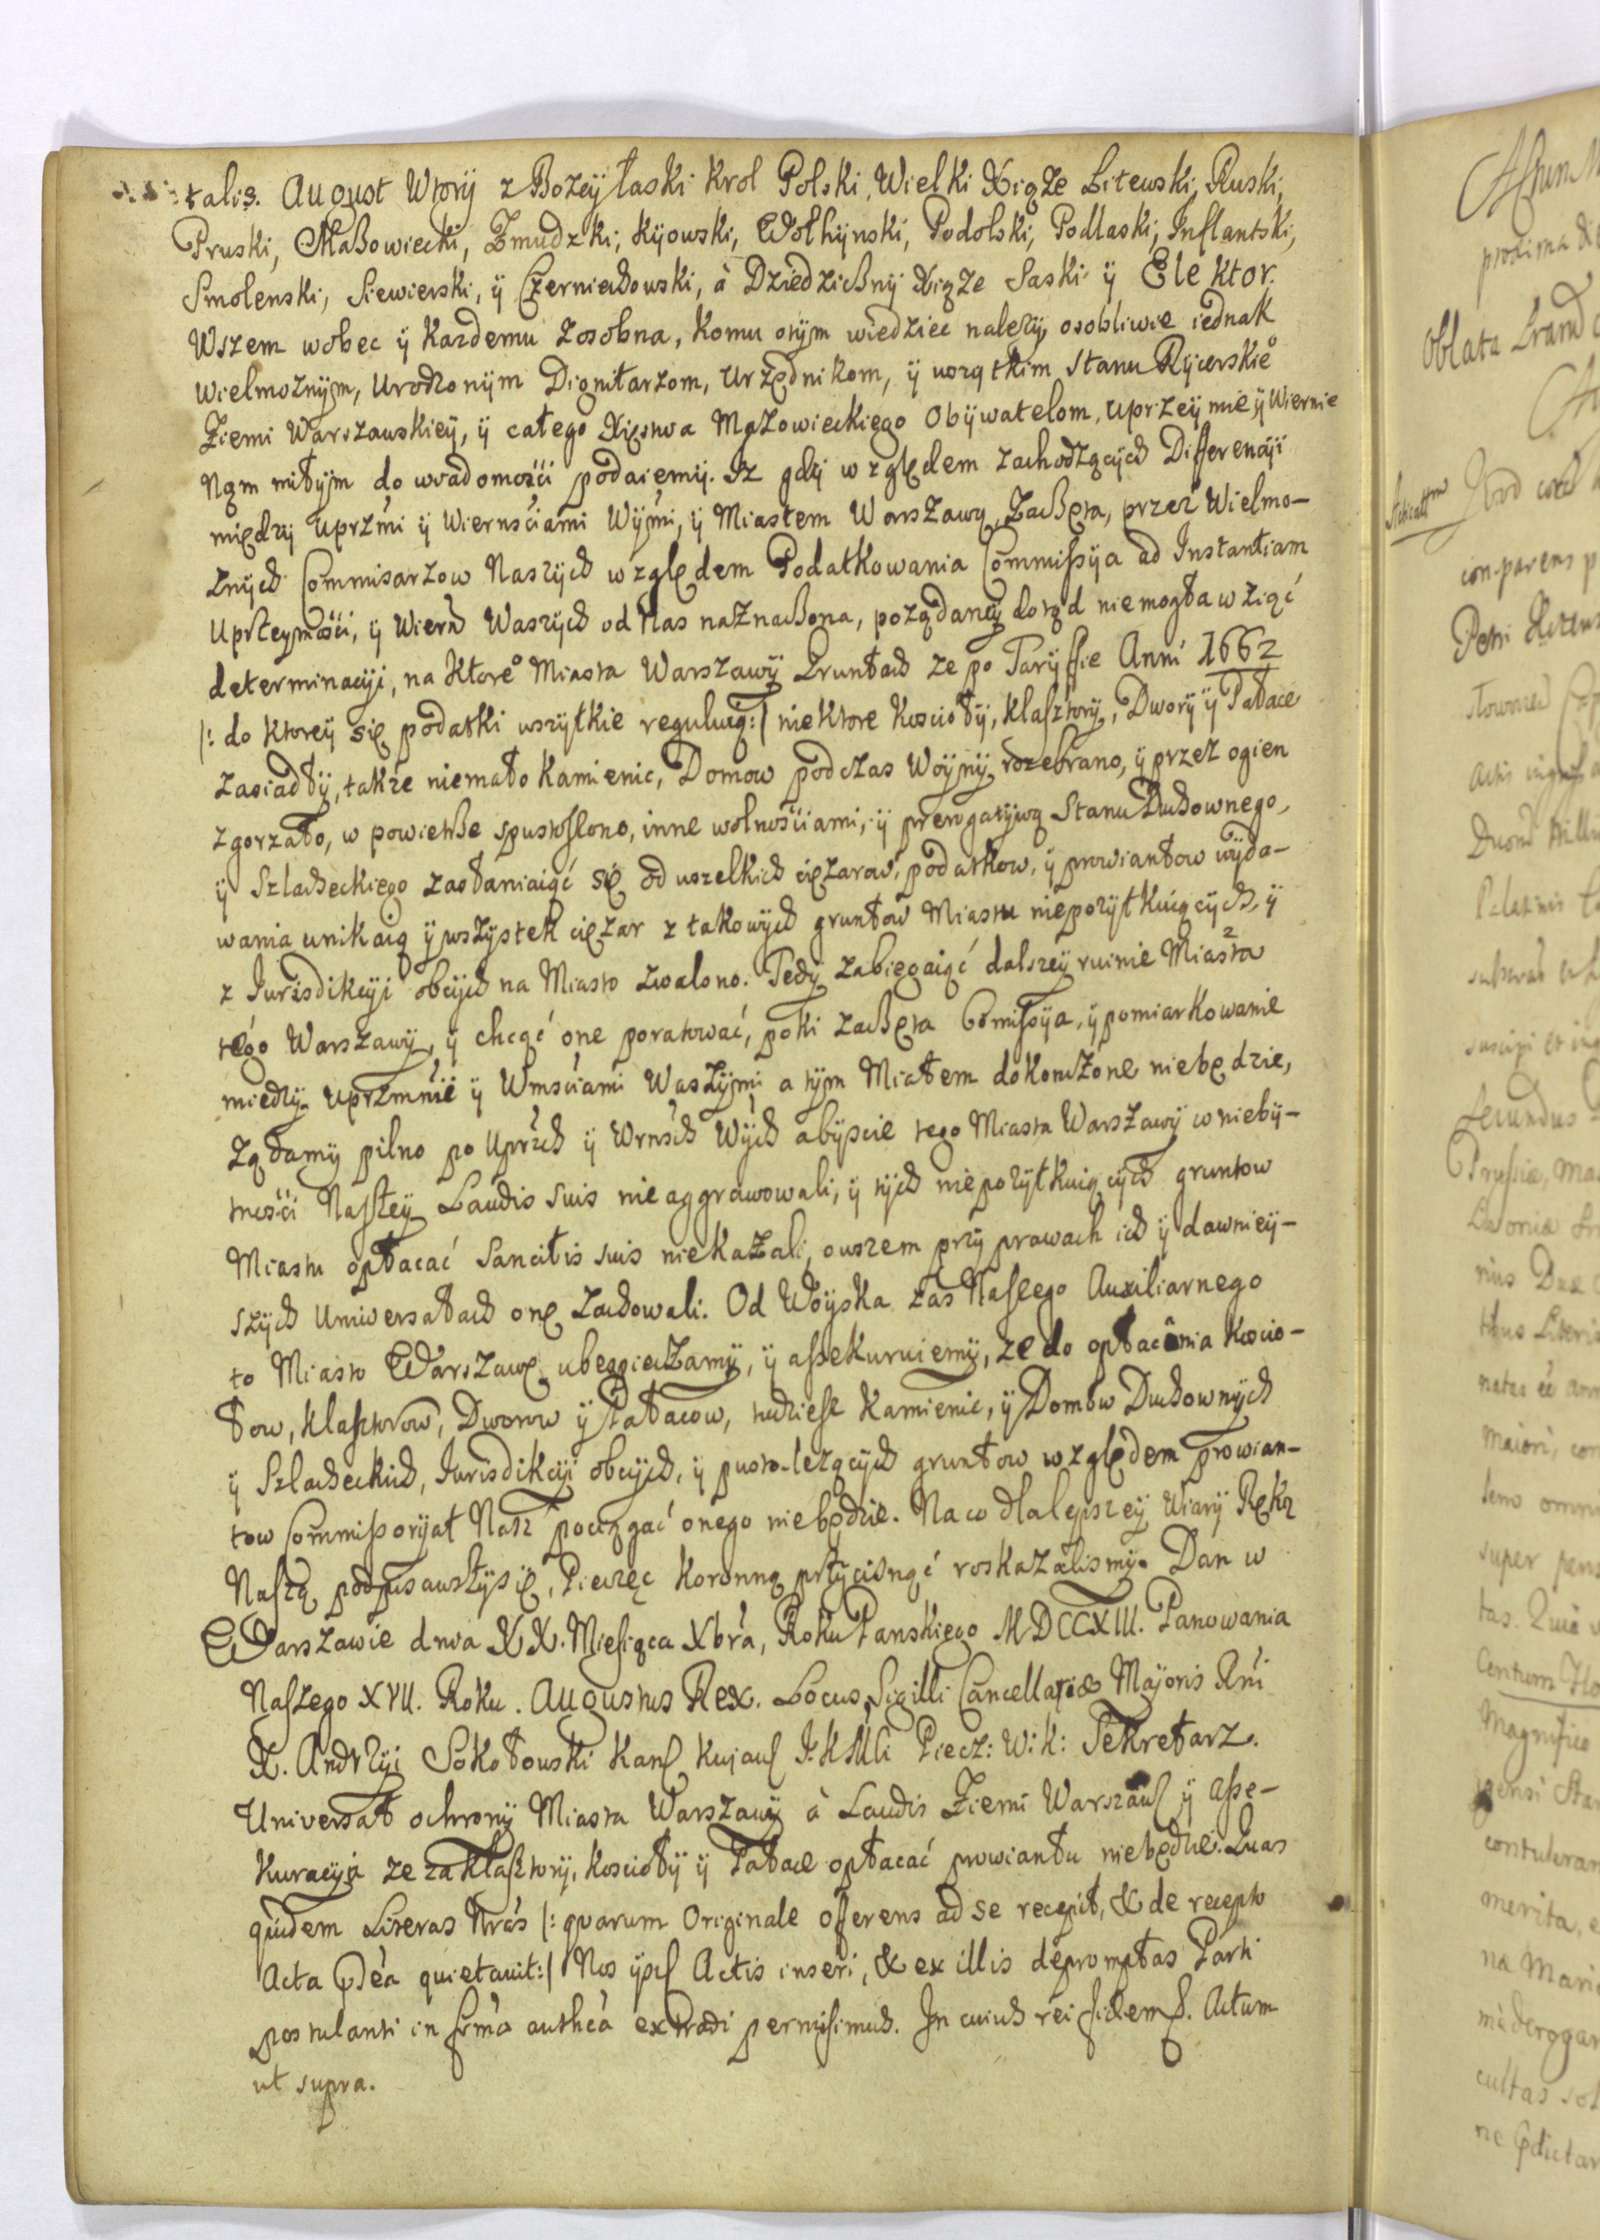 talis. August Wtorÿ z Bozeÿ łaski Krol Polski, Wielki Xiąze Litewski, Ruski,
Pruski, Mazowiecki, Zmudzki, Kÿowski, Wołhÿnski, Podolski, Podlaski, Inflantski,
Smolenski, Siewierski, ÿ Czerniechowski, à Dziedzicznÿ Xiąze Saski ÿ Elektor.
Wszem wobec ÿ Kazdemu zosobna, komu otÿm wiedziec nalezÿ, osobliwie iednak
Wielmoznÿm, Urodzonÿm Dignitarzom, Urzędnikom, ÿ wszÿtkim Stanu Rÿcerskiego
Ziemi Warszawskieÿ, ÿ całego Xięstwa Mazowieckiego Obÿwatelom, uprzeÿmie ÿ Wiernie
Nąm miłÿm do wiadomości podaiemÿ. Iz gdÿ względem zachodzącÿch Differencÿi
międzÿ Uprzmi ÿ Wiernściami Wÿmi, ÿ Miastem Warszawą, Zaczęta, przez Wielmo-
znÿch Commisarzow Naszÿch względem Podatkowania Commissÿa ad Instantiam
Uprzeÿmości, ÿ Wiern Waszÿch od Nas naznaczona, poządaneÿ dotąd niemogła wziąć
determinacÿi, na ktore Miasta Warszawÿ Gruntach ze po Tarÿffie Anni 1662
/: do ktoreÿ się podatki wszÿtkie reguluią :/ niektore Koscioły, klasztorÿ, Dworÿ ÿ Pałace
zasiadłÿ, także niemało Kamienic, Domow podczas Woÿnÿ rozebrano, ÿ przez ogien
zgorzało, w powietrze spustoszono, inne wolnościami, ÿ prerogatÿwą Stanu Duchownego,
ÿ Szlacheckiego zasłaniaiąć się od wszelkich ciężarow, podatkow, ÿ prowiantow wÿda-
wania unikaią ÿ wszÿstek ciężar z takowÿch gruntow Miastu niepozÿtkuiącÿch, ÿ
z Iurisdikcÿi obcÿch na Miasto zwalono. Tedÿ zabiegaiąć dalszeÿ ruinie Miasta
tego Warszawÿ, ÿ chcąć one poratować, poki zaczęta Comissÿa, ÿ pomiarkowanie
miedzÿ Uprzmnie ÿ Wmściami Waszÿmi a tÿm Miastem dokonczone niebędzie,
Ządamÿ pilno po Uprzch ÿ Wrnśch Wÿch abÿscie tego Miasta Warszawÿ w niebÿ-
tności Naszeÿ Laudis suis nie aggrawowali, ÿ tÿch niepozÿtkuiącÿch gruntow
Miastu opłacać Sancitis suis niekazali, owszem przÿ prawach ich ÿ dawnieÿ-
szÿch Uniwersałach onę zachowali. Od Woÿska zaś Naszego Auxiliarnego
to Miasto Warszawę ubezpieczamÿ, ÿ assekuruiemÿ, ze do opłacania Koscio-
łow, Klasztorow, Dworow ÿ Pałacow, tudziesz Kamienic, ÿ Domow Duchownÿch
ÿ Szlacheckich, Iurisdikcÿi obcÿch, ÿ pusto-lezącÿch gruntow względem prowian-
tow Commissorÿat Nasz pociągać onego niebędzie. Na co dla lepszeÿ Wiarÿ Ręką
Naszą podpisawszÿ się, Pieczęc Koronną przÿcisnąć roskazalismÿ. Dan w
Warszawie dnia XX. Miesiąca Xbra, Roku Panskiego MDCCXIII. Panowania
Naszego XVII. Roku. Augustus Rex. Locus Sigilli Cancellariæ Majoris Rni
X. Andrzÿi Sokołowski Kan Kujaw J. K Mci Piecz: W: K: Sekretarz.
Uniwersał ochronÿ Miasta Warszawÿ à Laudis Ziemi Warszaw ÿ asse-
kuracÿia ze za Klasztorÿ, Kosciołÿ ÿ Pałace opłacać prowiantu niebędzie. Quas
quidem Literas Nras /: quarum Originale offerens ad se recepit, & de recepto
Acta pdea quietavit :/ Nos ÿps Actis inseri, & ex illis depromptas Parti
postulanti in forma authca extradi permisimus. In cuius rei fidem. Actum
ut supra.